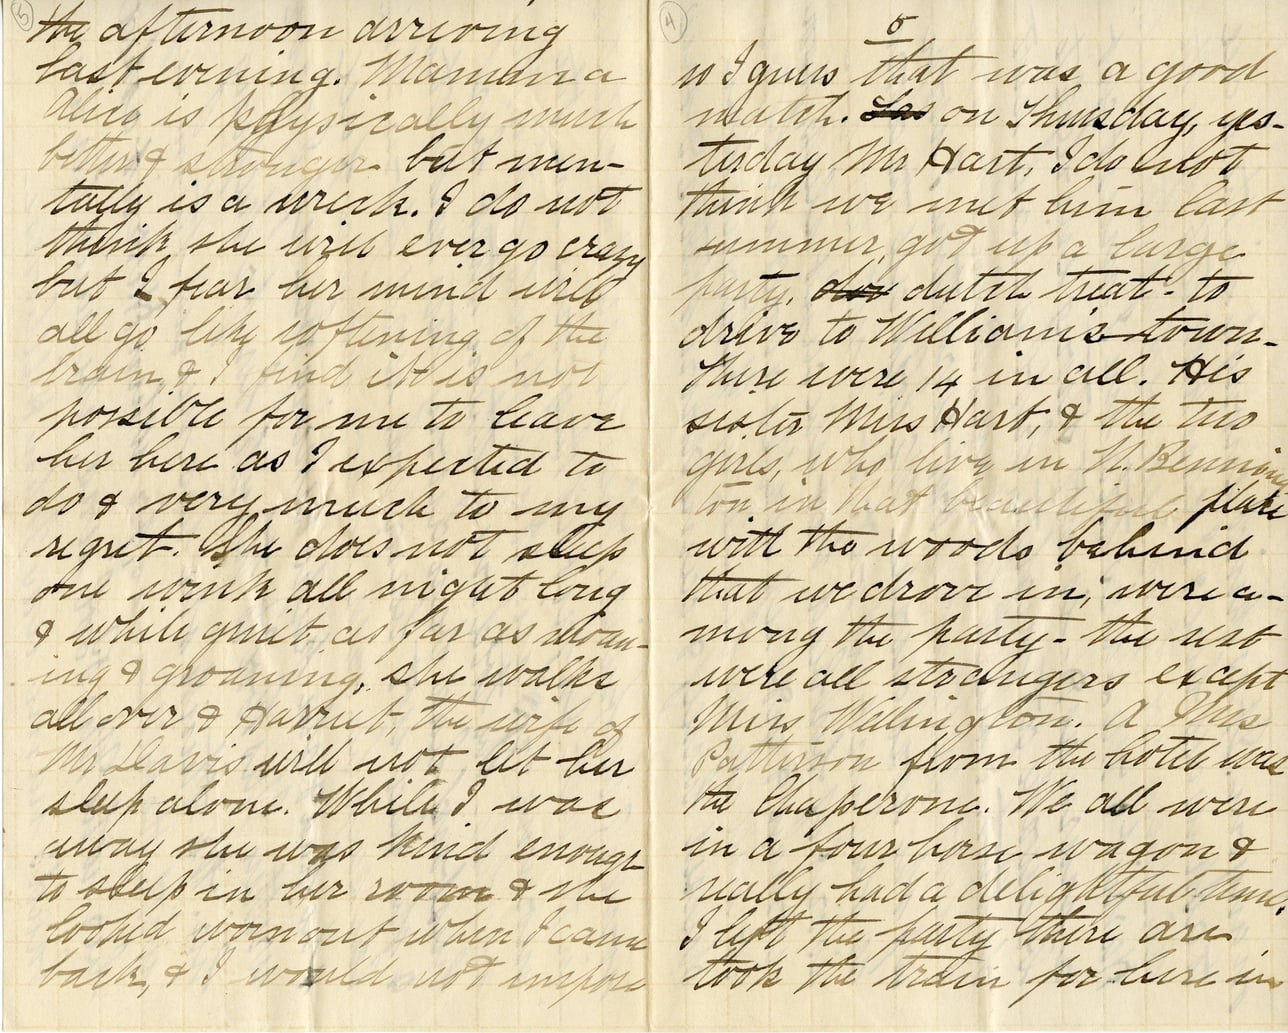 4
5
so I guess that was a good
match. ~~Las~~ on Thursday, yes-
terday Mr Hart, I do not
think we met him last
summer, got up a large
party, dutch treat - to
drive to Williams-town-
There were 14 in all. His
sister Miss Hart, & the two
girls, who live in N. Benning
ton in that beautiful place
with the woods behind
that we drove in, were a-
mong the party - the rest
were all strangers except
Miss Walington. A Mrs
Patterson from the hotel was
the Chaperone. We all were
in a four horse wagon &
really had a delightful time.
I left the party there and
took the train for here in
5
the afternoon arriving
last evening. Mamma
Alice is physically much
better & stronger but men-
tally is a wreck. I do not
think she will ever go crazy
but I fear her mind will
all go like softening of the
brain & I find it is not
possible for me to leave
her here as I expected to
do & very much to my
regret. She does not sleep
one wink all night long
& while quiet as far as moan-
ing & groaning, she walks
all over & Harriet, the wife of
Mr Davis will not let her
sleep alone. While I was
away she was kind enough
to sleep in her room & she
looked wornout when I came
back, & I would not impose